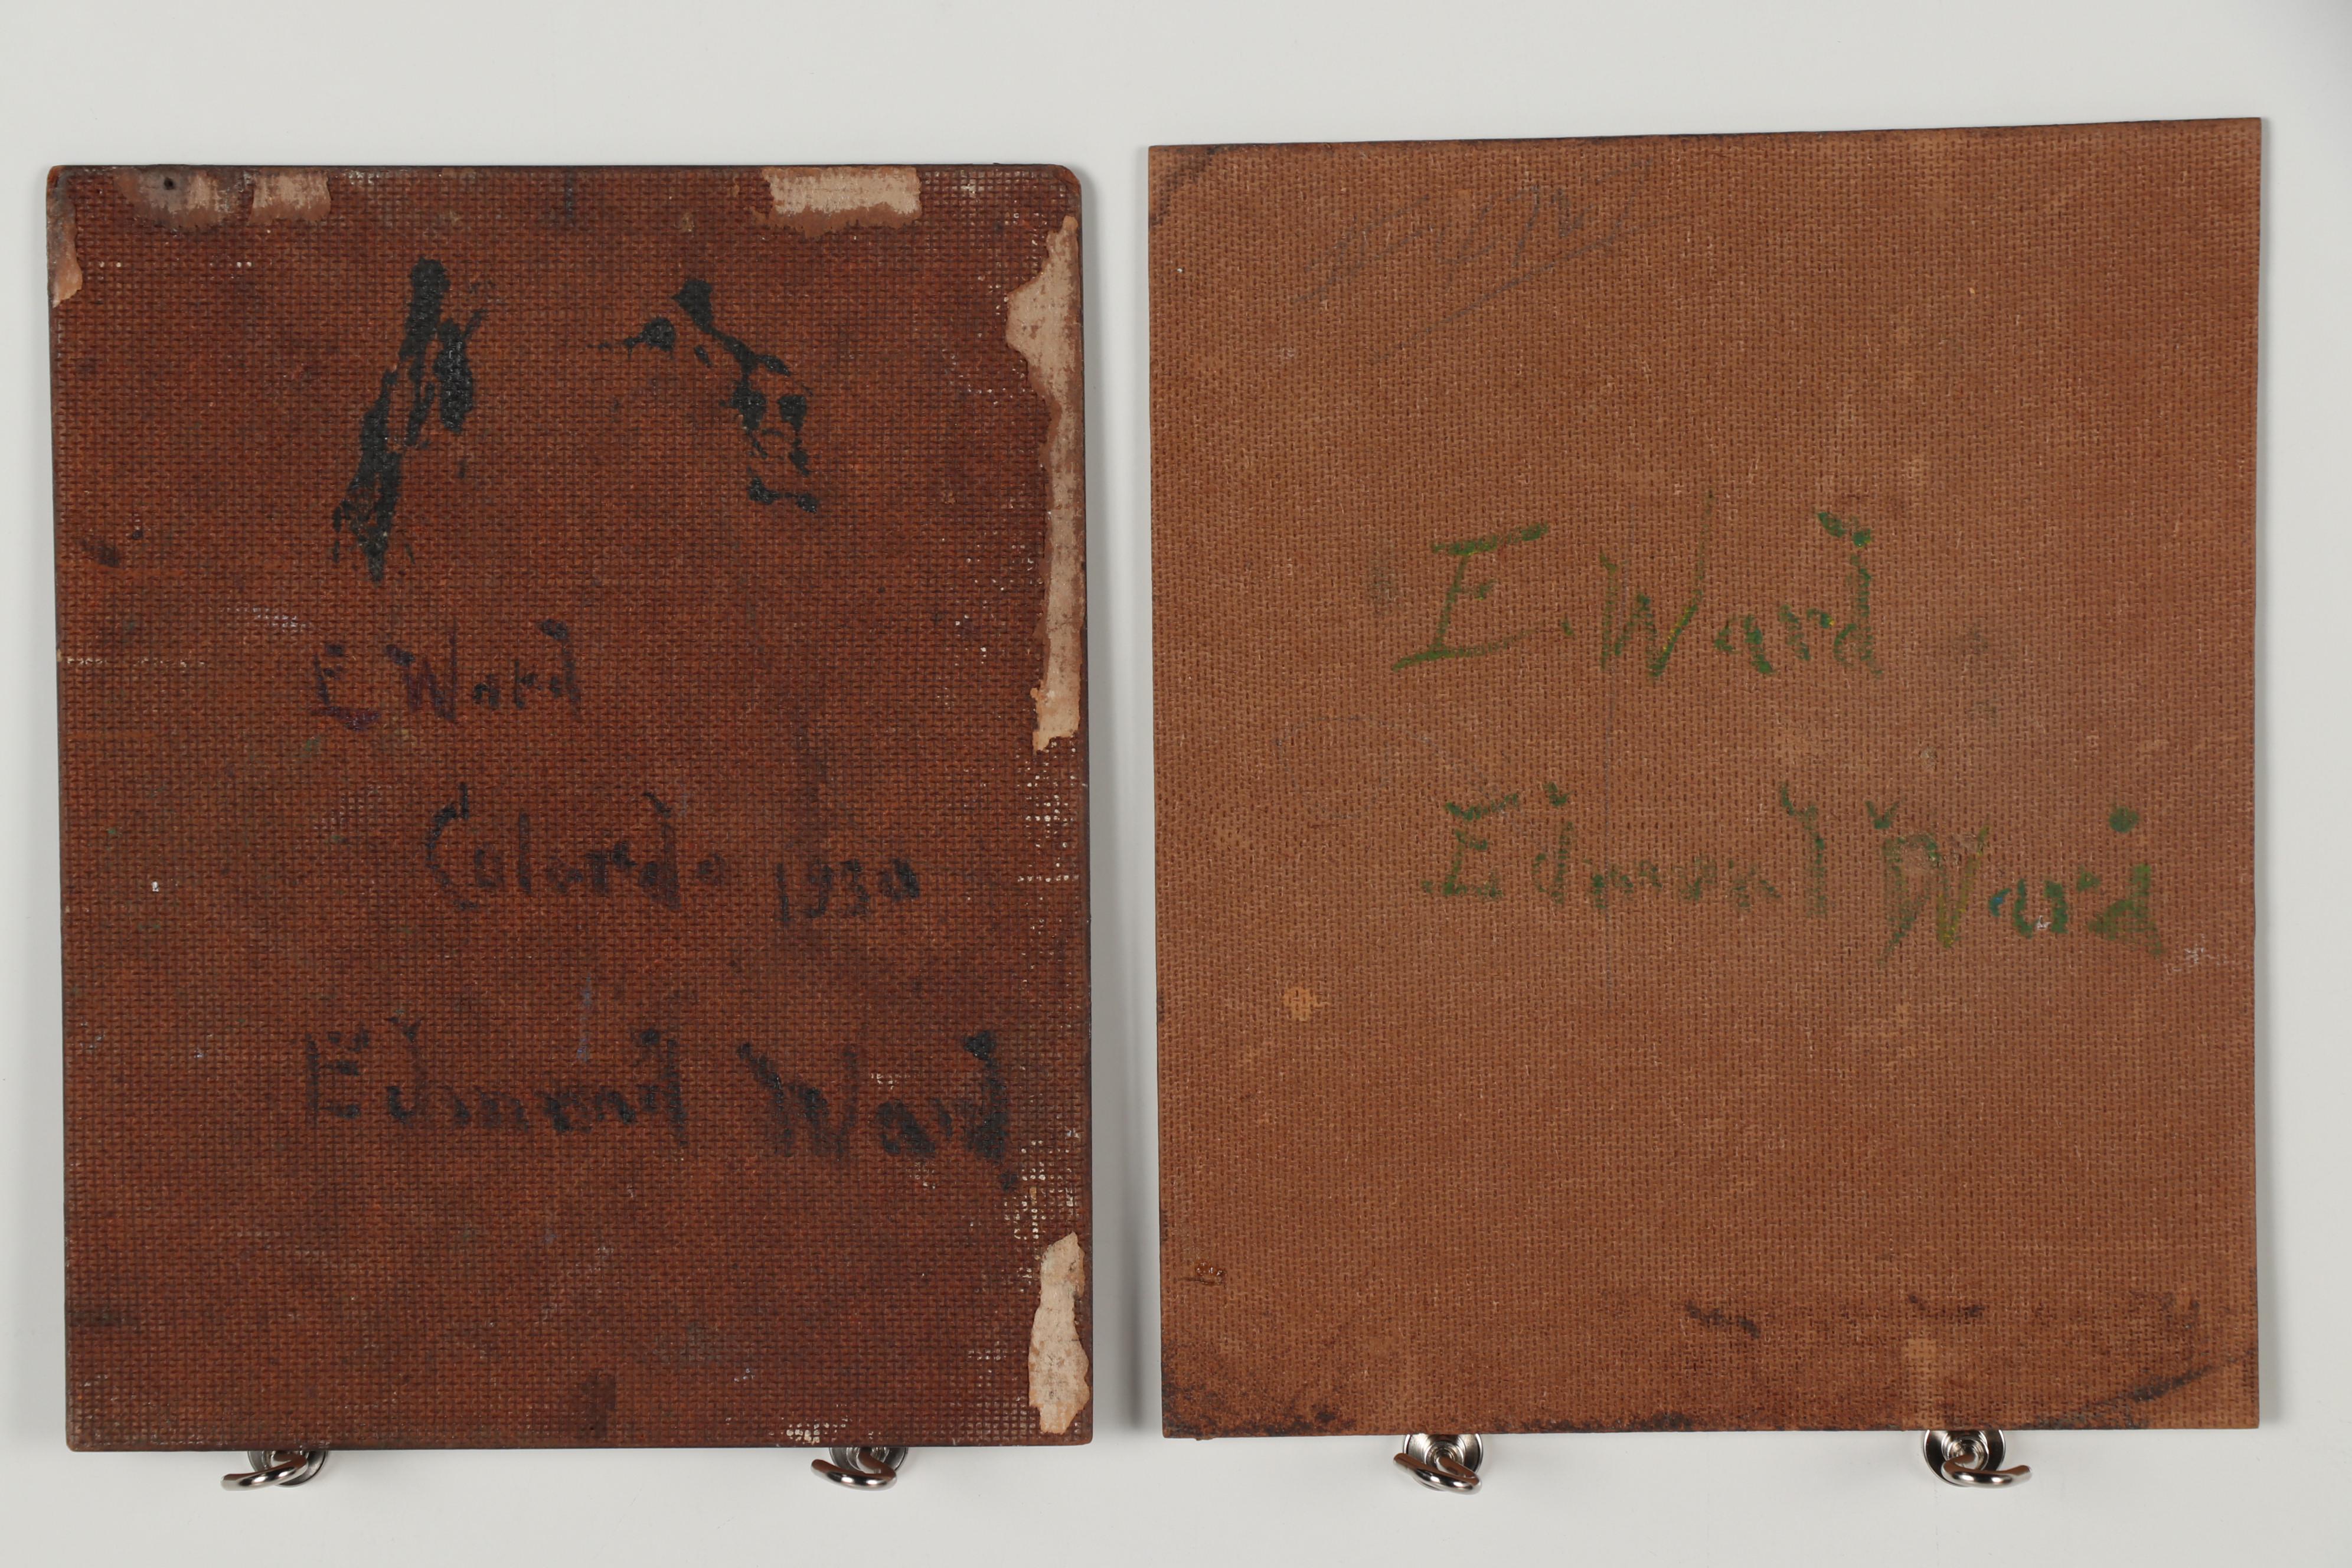 E. Ward
Colorado 1930
Edmund Ward
E. Ward
Edmund Ward